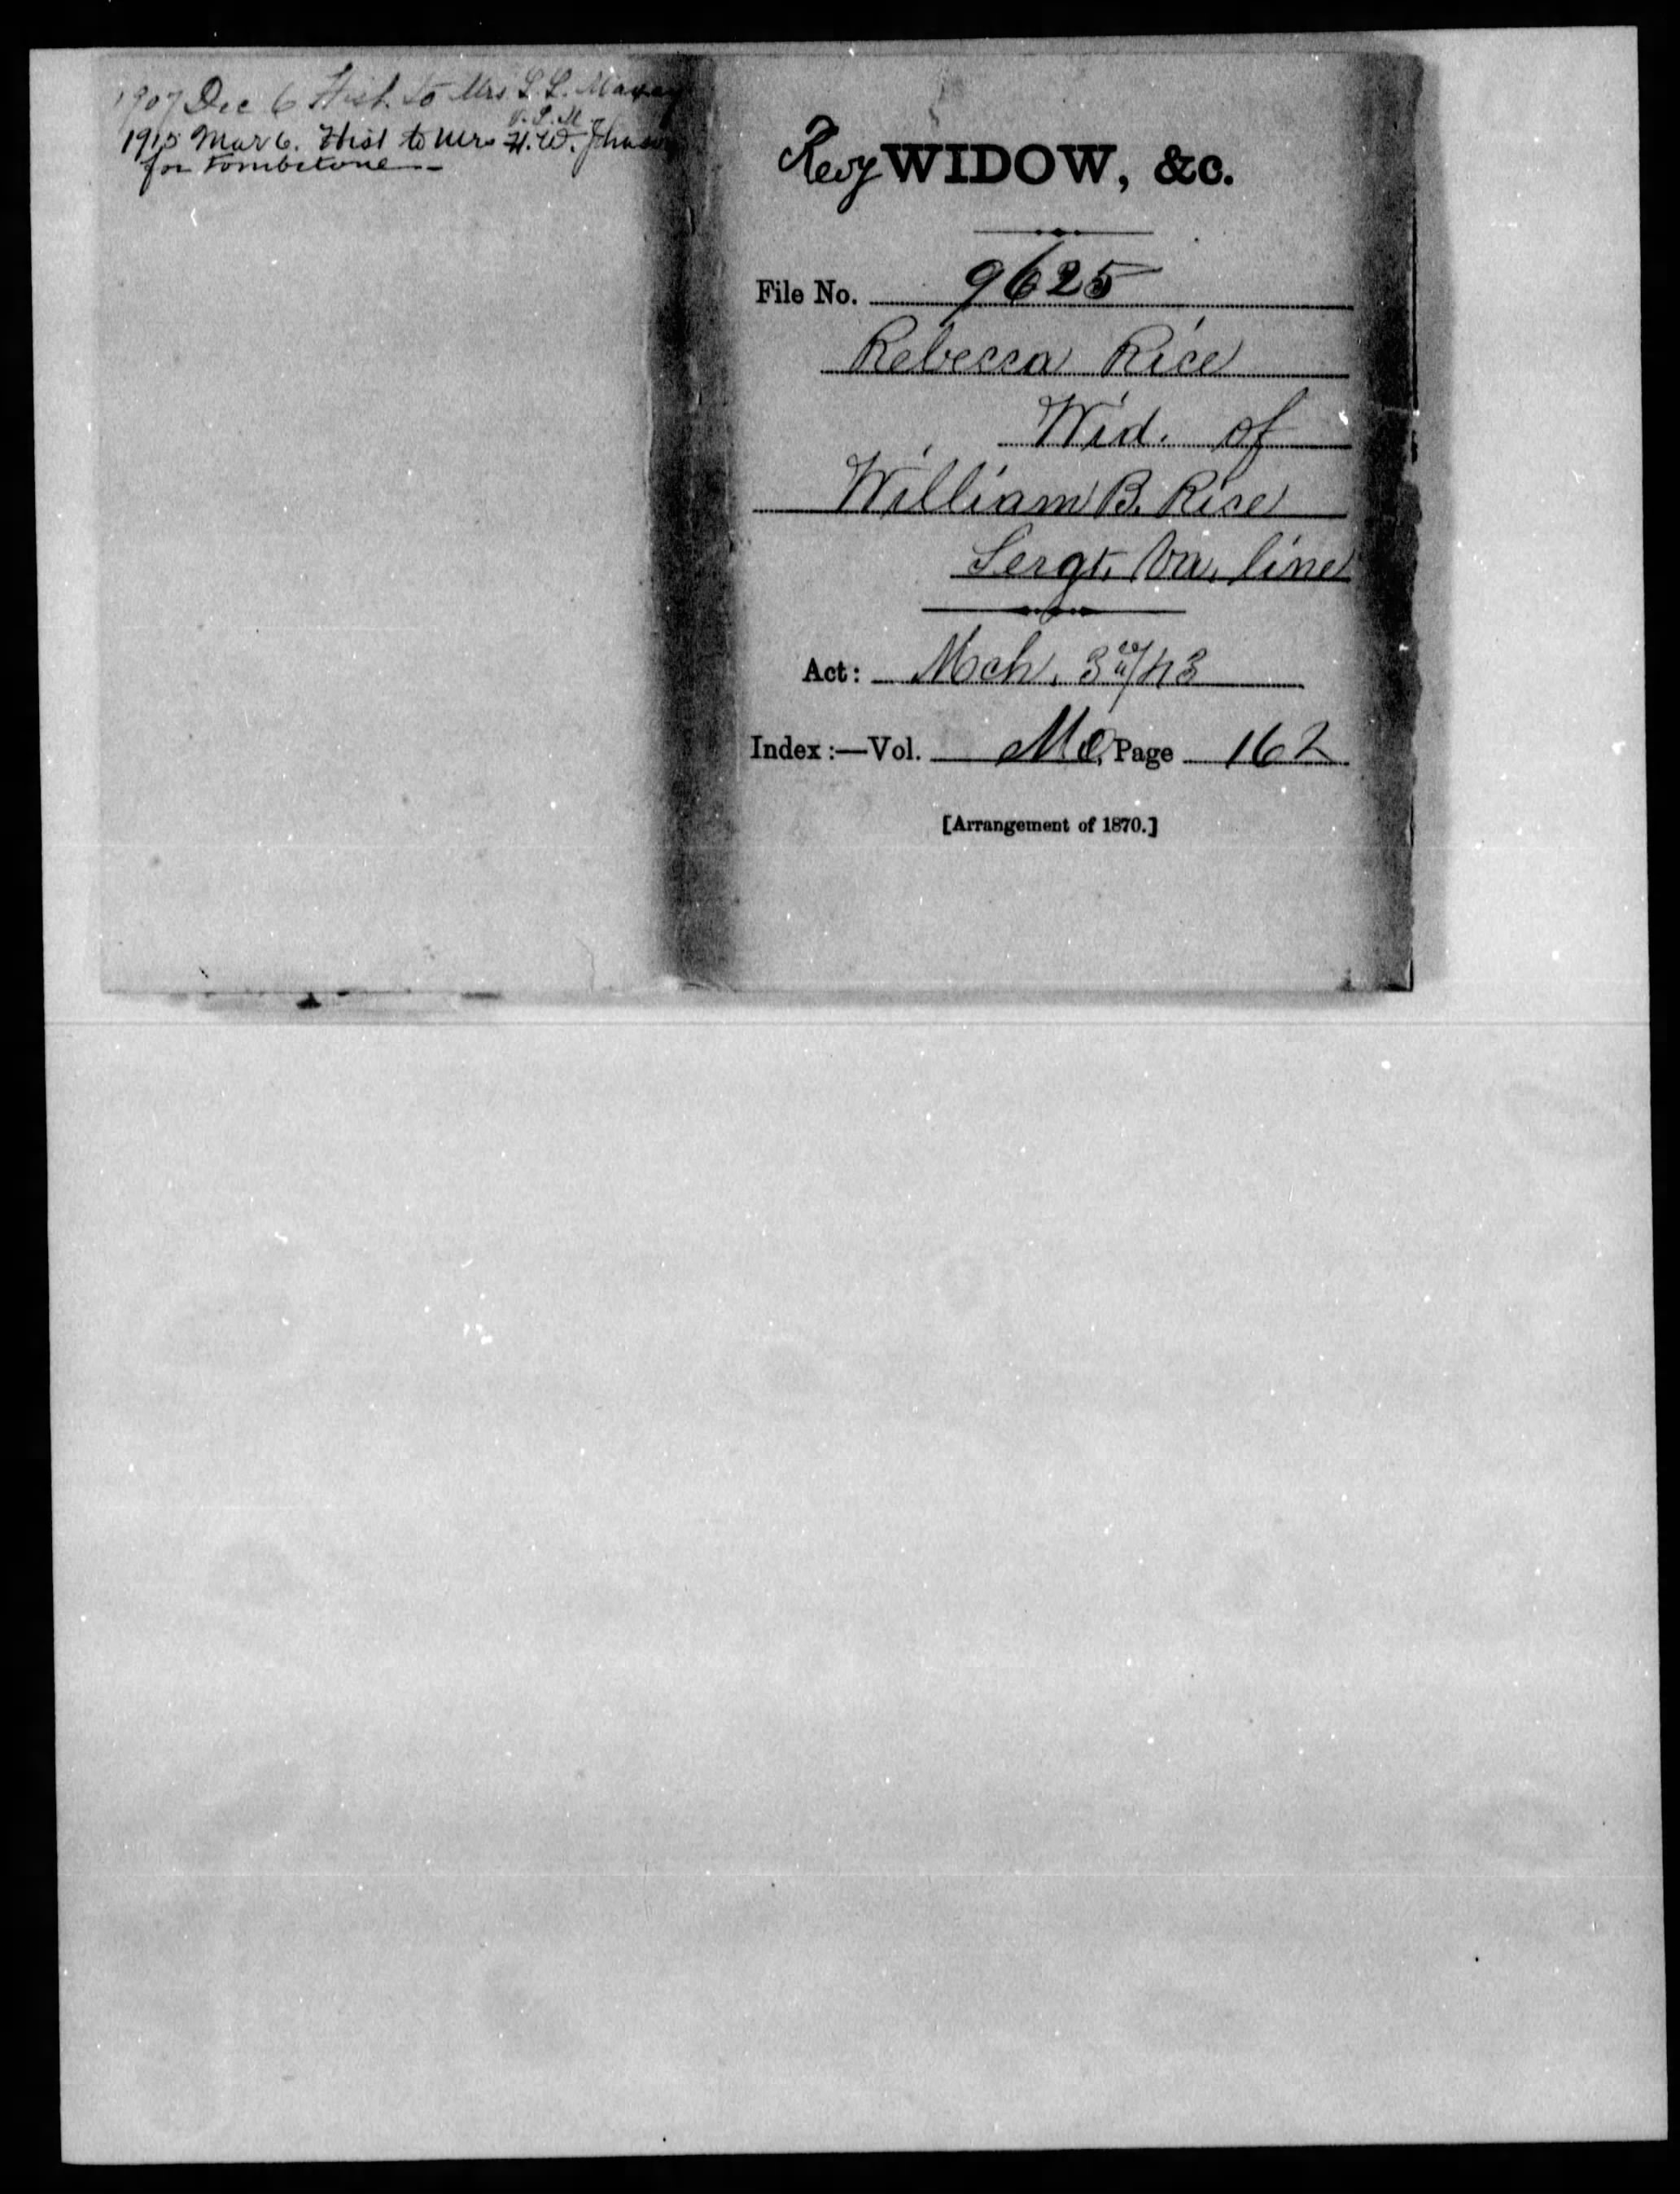 1907 Dec 6 Hist. to Mrs. L. L. Maxey
1915 Mar 6. Hist to Mrs H. W. Johnson
for tombstone—
Rev WIDOW, &c.
File No. 9625
Rebecca Rice
Wid. of
William B. Rice
Sergt. Va. line
Act: Mch. 3d/43
Index:—Vol. Mc, Page 162
[Arrangement of 1870.]